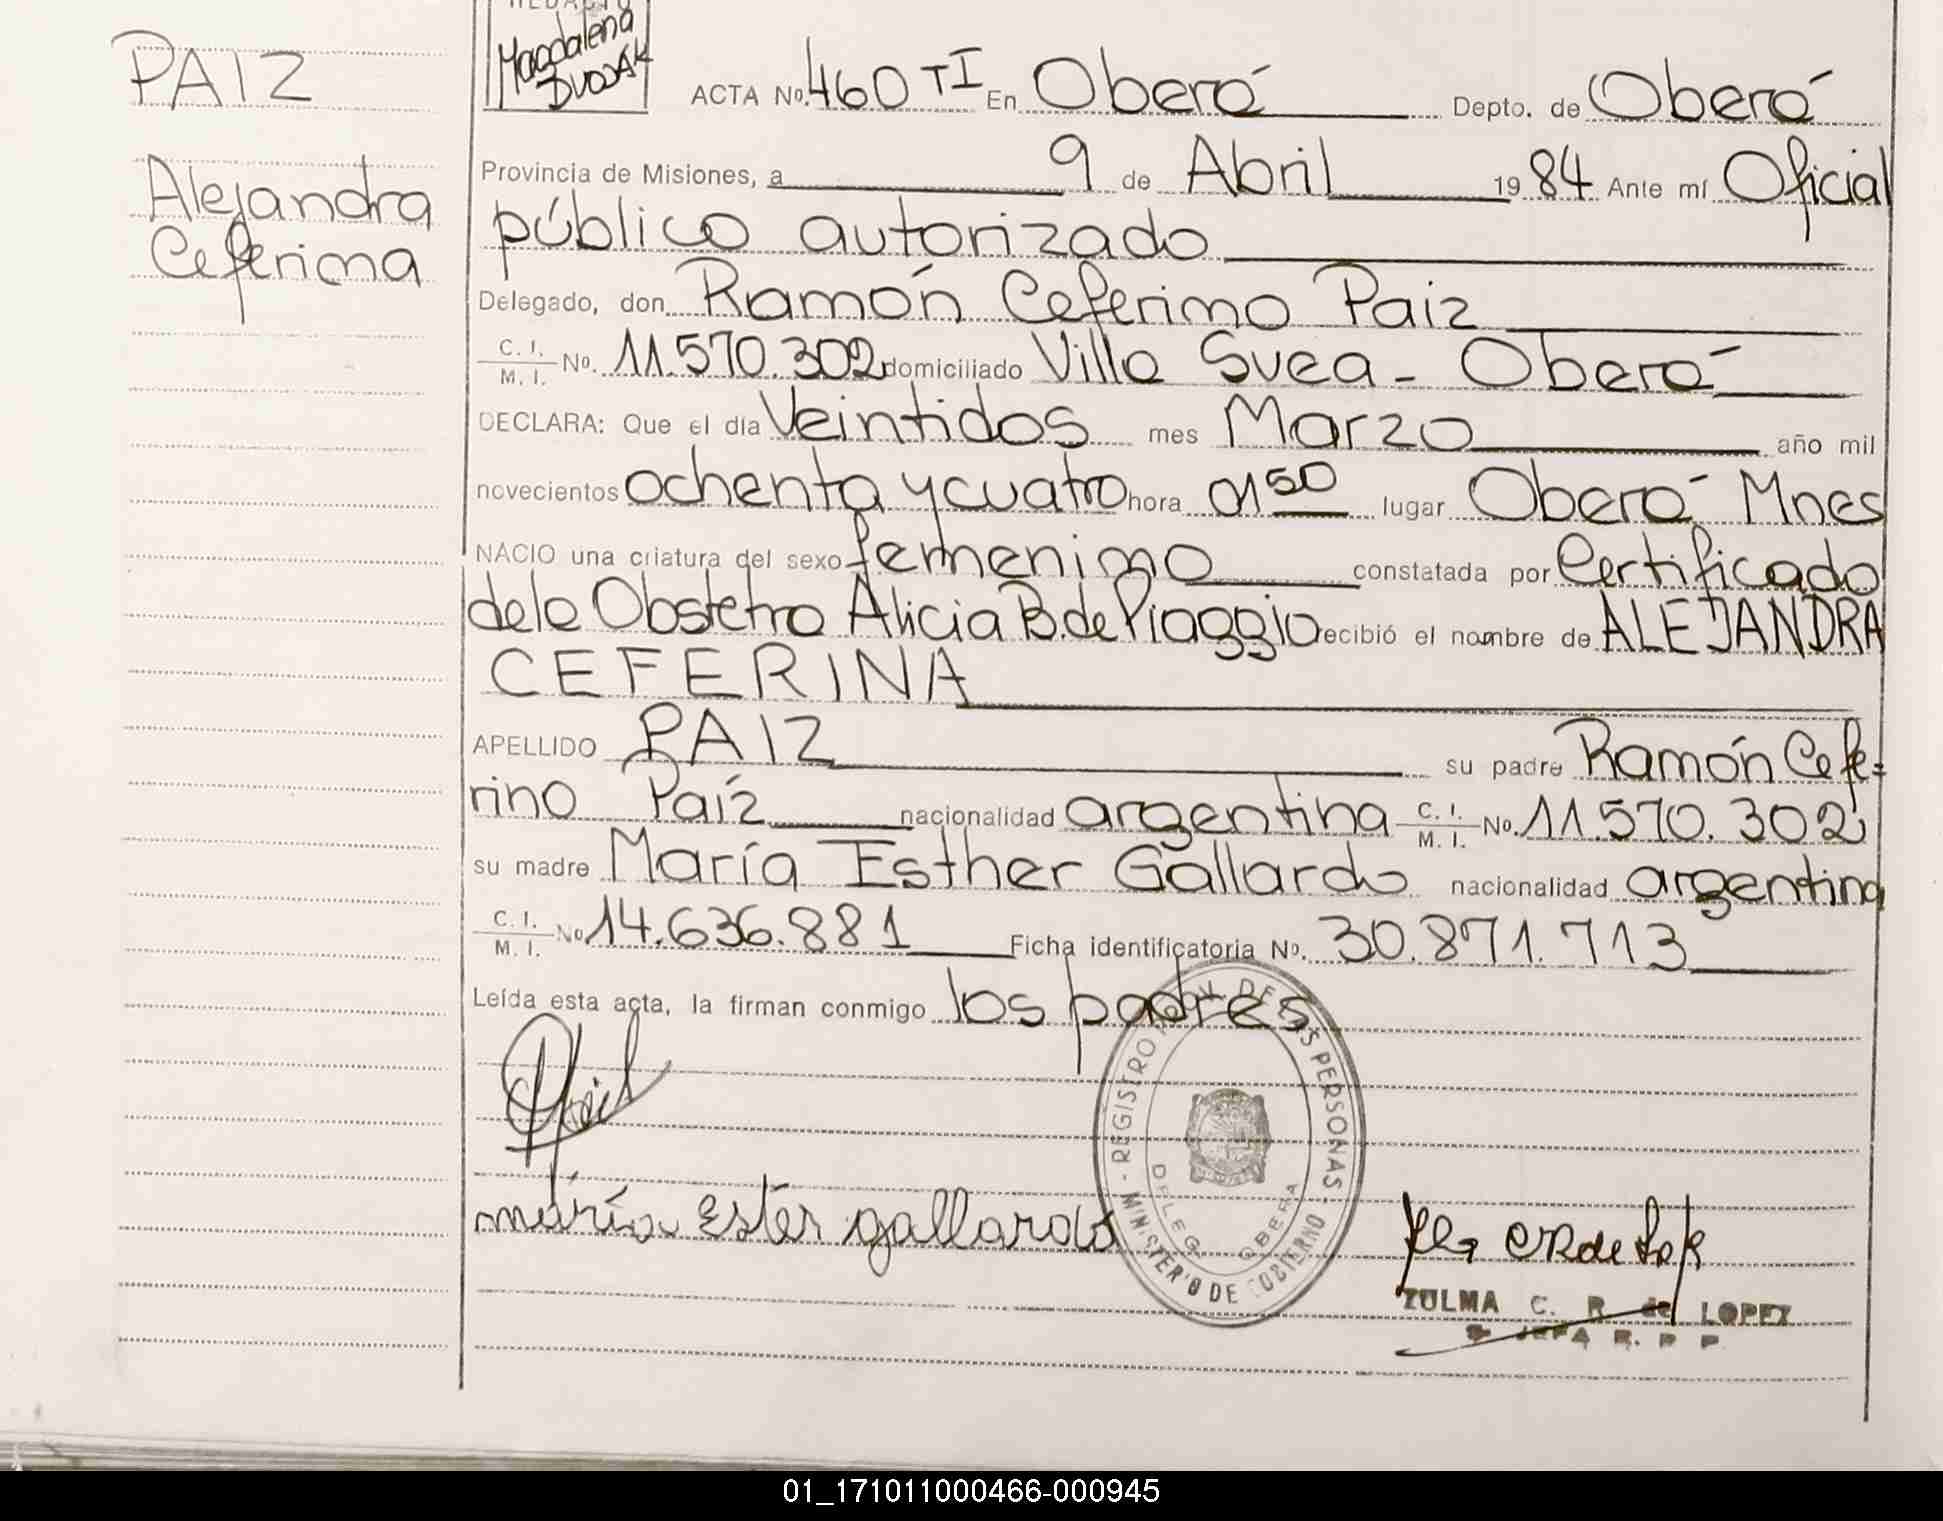 PAIZ
Alejandra
Ceferina
REDACTO
Magdalena
DVOJAK
ACTA No. 460 TI En Oberá Depto. de Oberá
Provincia de Misiones, a 9 de Abril 1984 Ante mí Oficial
público autorizado
Delegado, don Ramón Ceferino Paiz
C. I. M. I. No. 11.570.302 domiciliado Villa Svea - Oberá
DECLARA: Que el día Veintidos mes Marzo año mil
novecientos ochenta y cuatro hora 01 50 lugar Oberá Mnes
NACIO una criatura del sexo femenino constatada por Certificado
dela Obstetra Alicia B. de Piaggio recibió el nombre de ALEJANDRA
CEFERINA
APELLIDO PAIZ su padre Ramón Cefe=
rino Paíz nacionalidad argentina C. I. M. I. No. 11.570.302
su madre María Esther Gallardo nacionalidad argentina
C. I. M. I. No 14.636.881 Ficha identificatoria No. 30.871.713
Leída esta acta, la firman conmigo los padres
maría Ester gallardo
REGISTRO DE LAS PERSONAS - MINISTERIO DE GOBIERNO -
DELEG. OBERA
ZULMA C. R. de LOPEZ
JEFA R. P. P.
01_171011000466-000945